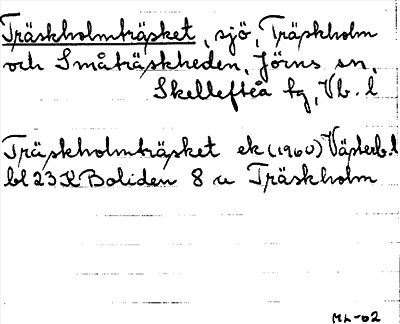 Träskholmträsket, sjö, Träskholm
och Småträskheden, Jörns sn,
Skellefteå tg, Vb. l
Träskholmträsket ek (1960) Västerb. l
bl 23 K Boliden 8 a Träskholm
ML-02